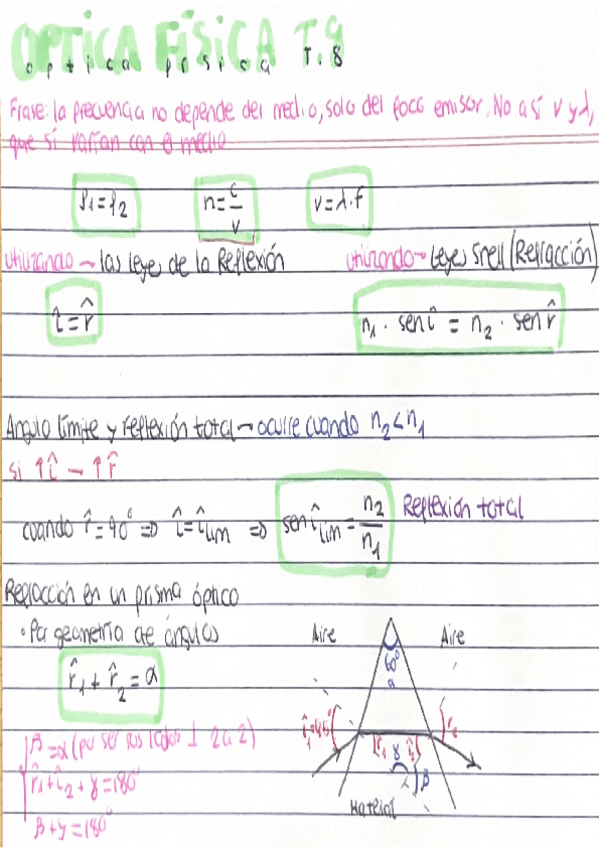 OPTICA FÍSICA T.9
optica física T.8
Frase: la frecuencia no depende del medio, solo del foco emisor. No así v y λ,
que sí varían con el medio
f₁=f₂ n=c/v v=λ·f
Utilizando → las leyes de la Reflexión Utilizando → Leyes Snell (Refracción)
î=r̂ n₁ · sen î = n₂ · sen r̂
Angulo límite y reflexión total → ocurre cuando n₂<n₁
Si ↑î → ↑r̂
cuando r̂=90° ⇒ î=î lim ⇒ sen î lim = n₂/n₁ Reflexión total
Refracción en un prisma óptico
• Por geometría de ángulos Aire Aire
60°
r̂₁+r̂₂=α α
î₁=45° r̂₁ γ β
β=α (por ser sus lados ⊥ 2 a 2)
r̂₁+î₂+γ=180°
Material
β+γ=180°